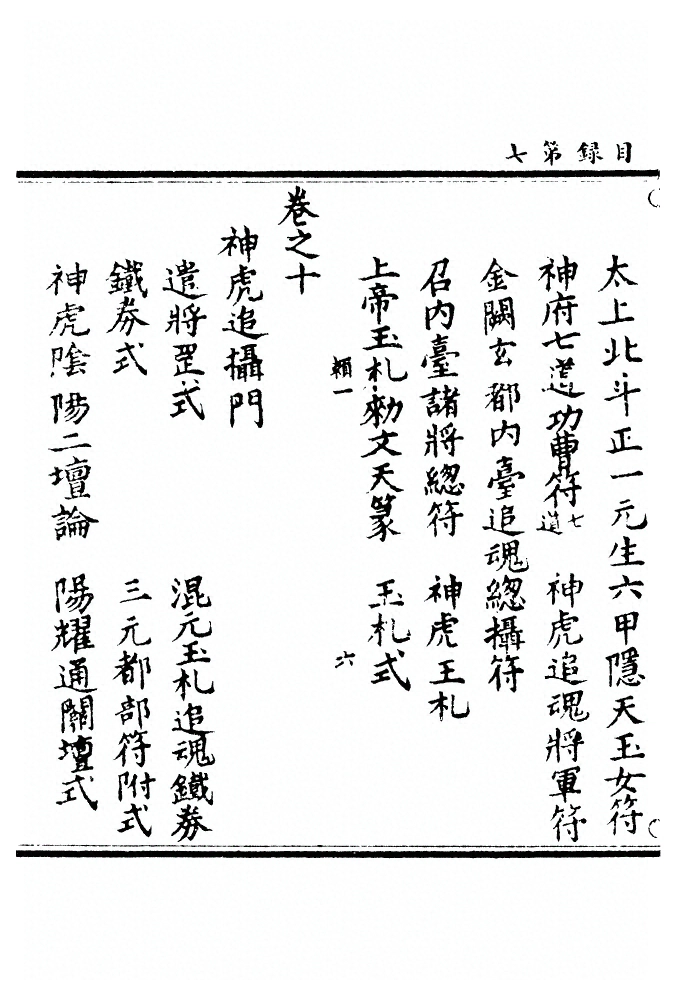 目錄第七
太上北斗正一元生六甲隱天玉女符
神府七道功曹符七道　神虎追魂將軍符
金闕玄都內臺追魂總攝符
召內臺諸將總符　神虎玉札
上帝玉札勑文天篆　玉札式
賴一　六
卷之十
神虎追攝門
遣將罡式　混元玉札追魂鐵券
鐵券式　三元都部符附式
神虎陰陽二壇論　陽耀通關壇式